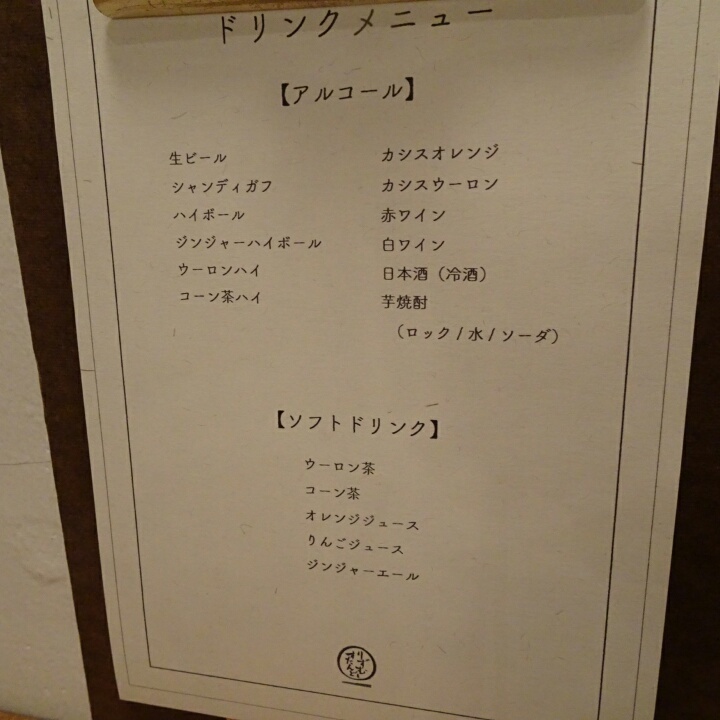 ドリンクメニュー
【アルコール】
生ビール
シャンディガフ
ハイボール
ジンジャーハイボール
ウーロンハイ
コーン茶ハイ
カシスオレンジ
カシスウーロン
赤ワイン
白ワイン
日本酒（冷酒）
芋焼酎
（ロック / 水 / ソーダ）
【ソフトドリンク】
ウーロン茶
コーン茶
オレンジジュース
りんごジュース
ジンジャーエール